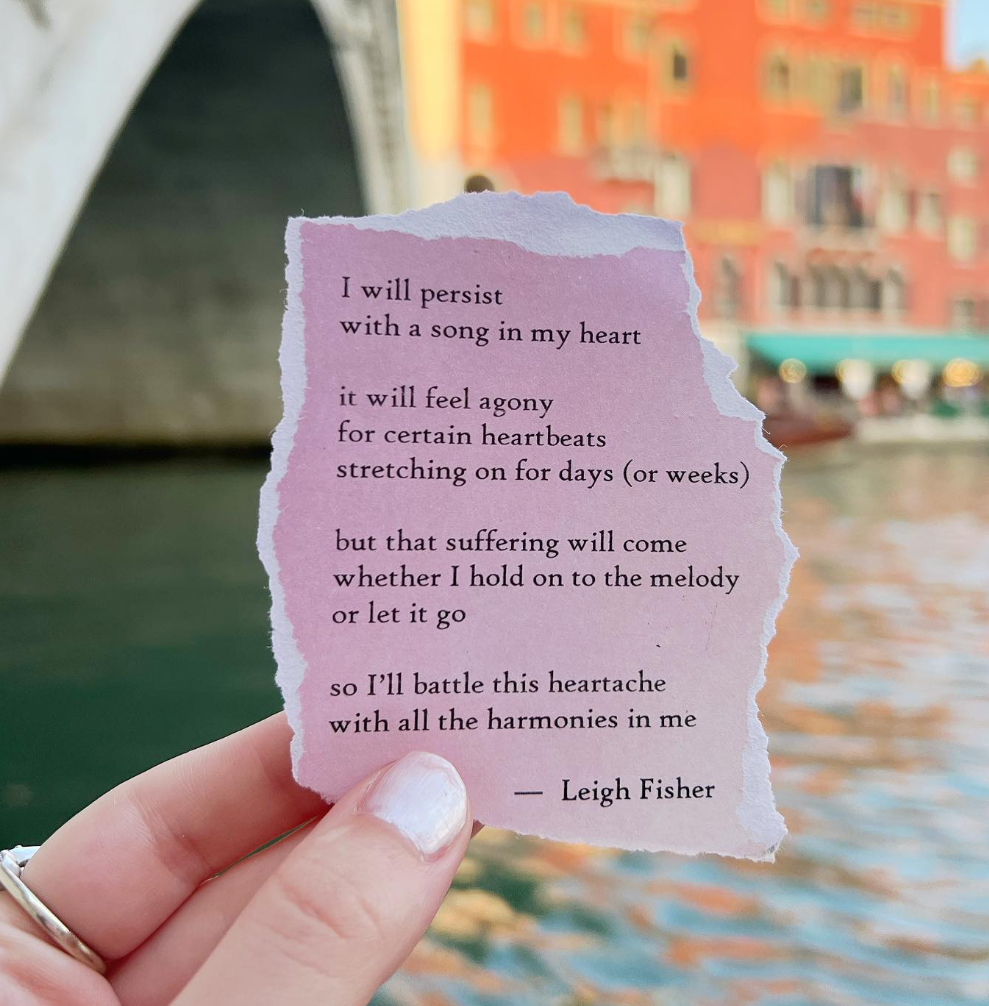 I will persist
with a song in my heart
it will feel agony
for certain heartbeats
stretching on for days (or weeks)
but that suffering will come
whether I hold on to the melody
or let it go
so I’ll battle this heartache
with all the harmonies in me
— Leigh Fisher